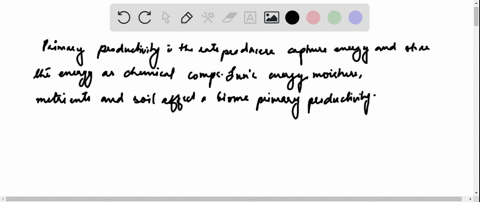 Primary productivity is the rate producers capture energy and store
this energy as chemical energy moisture,
nutrients and soil affect a biome primary productivity.